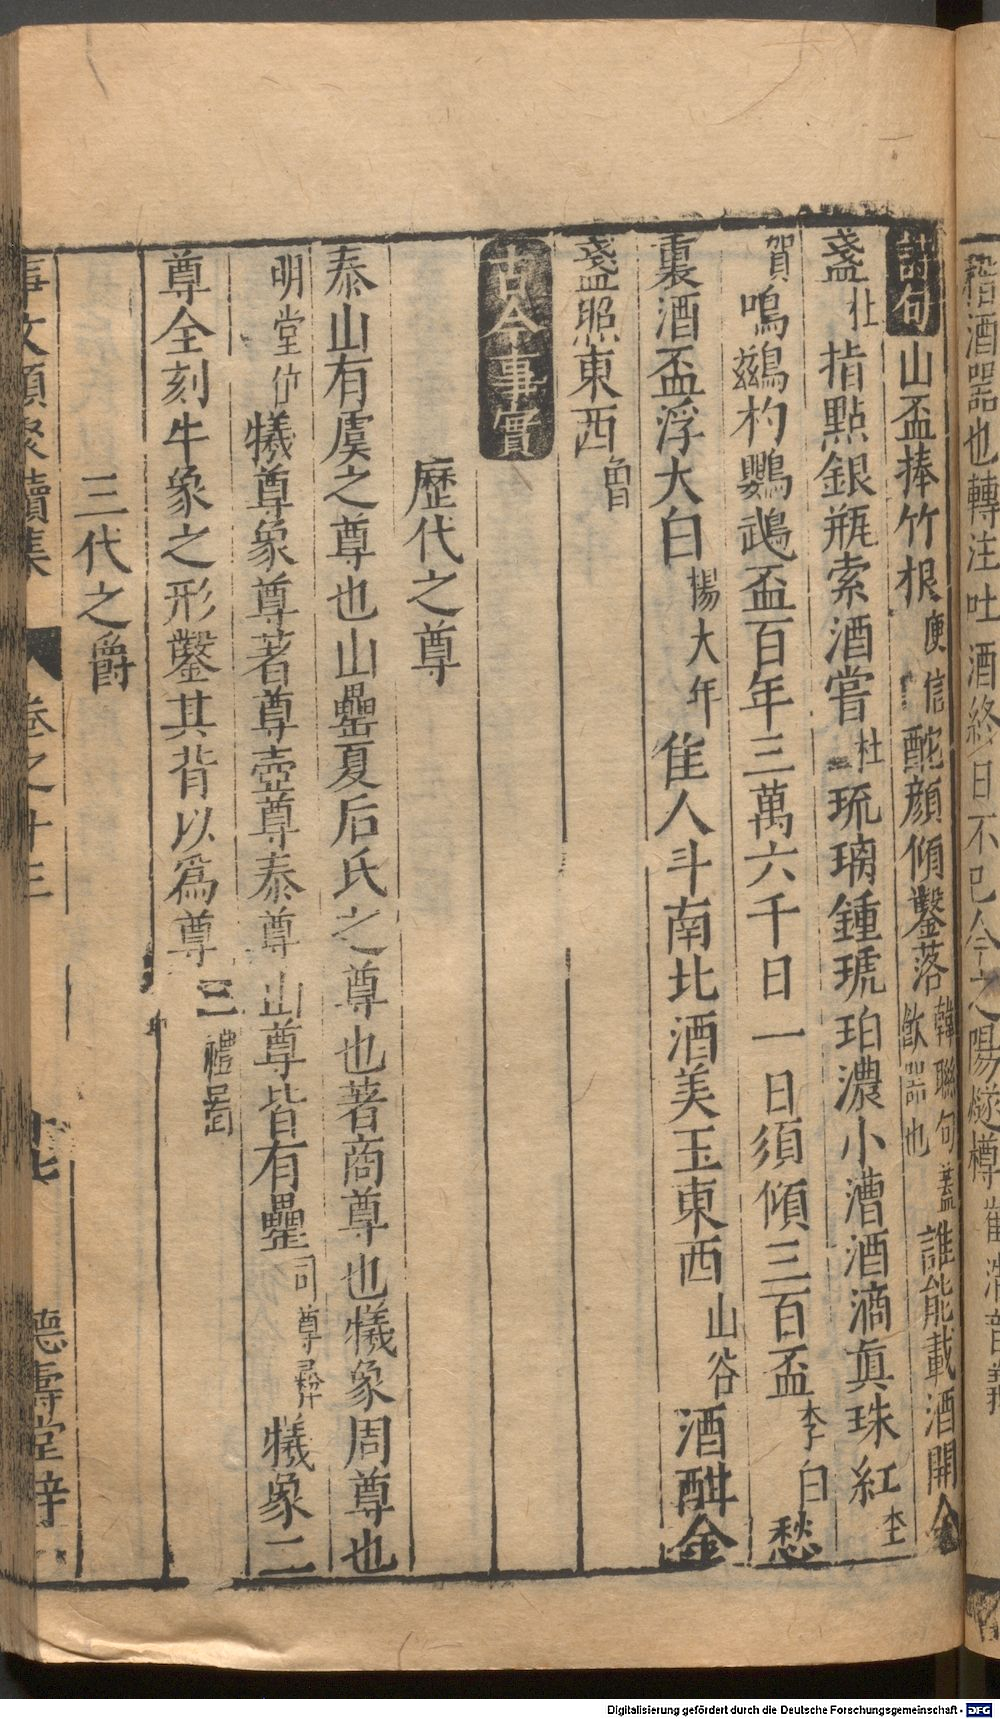 稽酒器也轉注吐酒終日不已今之陽燧樽
詩句山盃捧竹根庾信酡顔傾鑿落韓聯句蓋飲器也誰能載酒開金
盞杜指點銀瓶索酒嘗杜琉璃鍾琥珀濃小漕酒滴眞珠紅李
賀鳴鷀杓鸚鵡盃百年三萬六千日一日須傾三百盃李白愁
裏酒盃浮大白楊大年佳人斗南北酒美玉東西山谷酒酣金
盞照東西魯
古今事實
歷代之尊
泰山有虞之尊也山罍夏后氏之尊也著商尊也犧象周尊也
明堂位犧尊象尊著尊壺尊泰尊山尊皆有罍司尊彞犧象二
尊全刻牛象之形鑿其背以爲尊三禮圖
三代之爵
事文類聚續集 卷之十三 十七 德壽堂梓
Digitalisierung gefördert durch die Deutsche Forschungsgemeinschaft - DFG